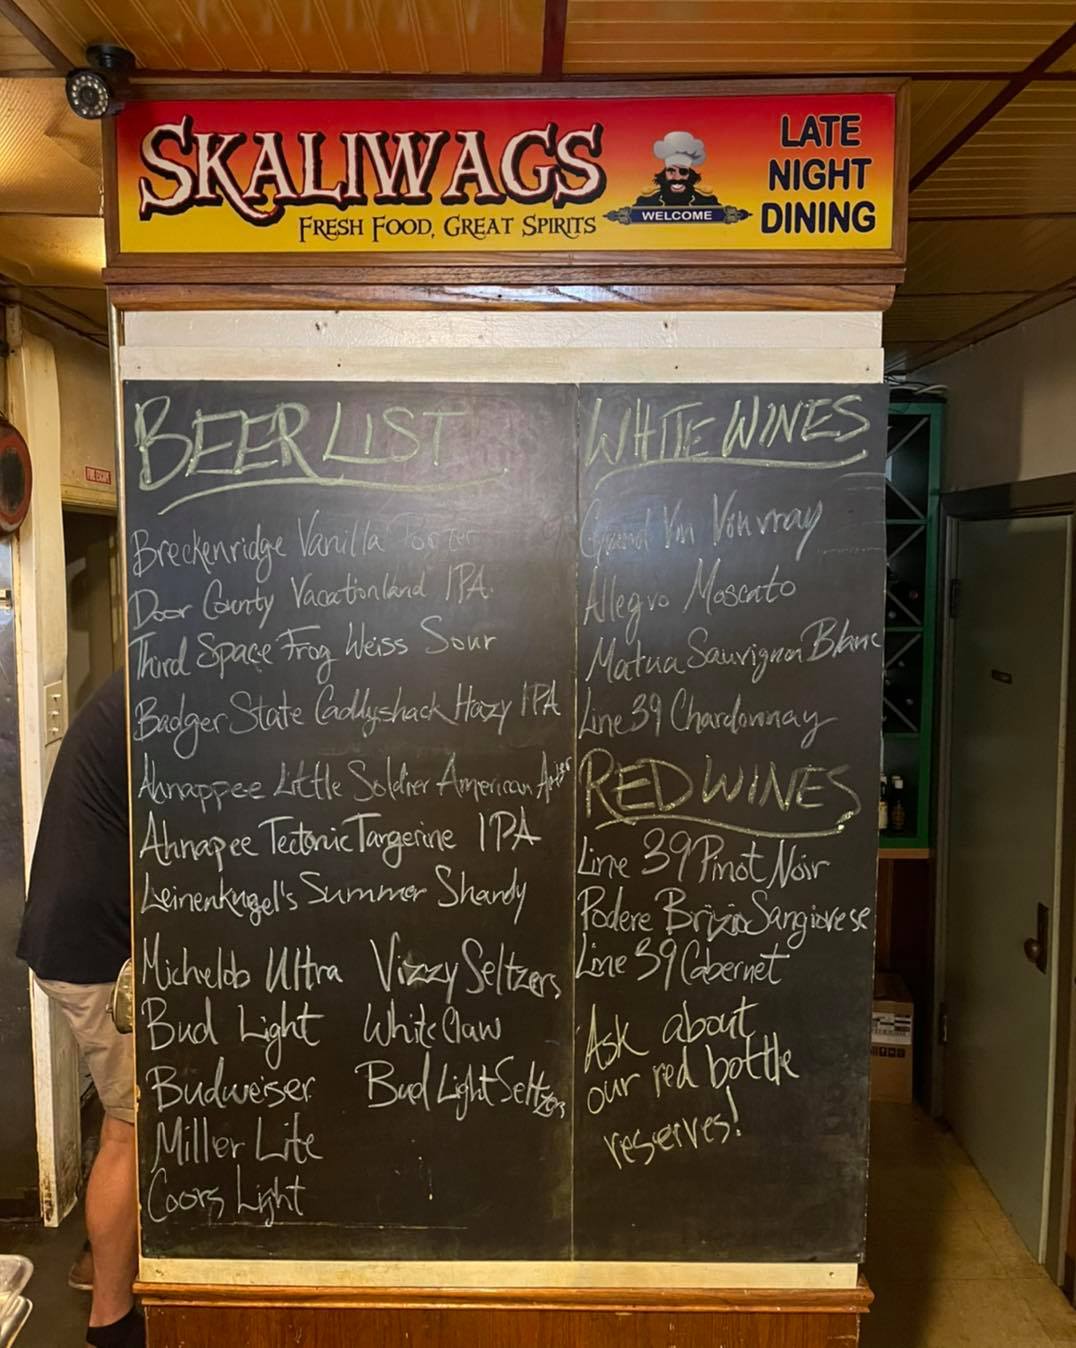 SKALIWAGS
FRESH FOOD, GREAT SPIRITS
WELCOME
LATE
NIGHT
DINING
BEER LIST
Breckenridge Vanilla Porter
Door County Vacationland IPA
Third Space Frog Weiss Sour
Badger State Caddyshack Hazy IPA
Ahnappee Little Soldier American Amber
Ahnapee Tectonic Tangerine IPA
Leinenkugel's Summer Shandy
Michelob Ultra
Bud Light
Budweiser
Miller Lite
Coors Light
Vizzy Seltzers
White Claw
Bud Light Seltzers
WHITE WINES
Grand Vin Vouvray
Allegro Moscato
Matua Sauvignon Blanc
Line 39 Chardonnay
RED WINES
Line 39 Pinot Noir
Podere Brizio Sangiovese
Line 39 Cabernet
Ask about
our red bottle
reserves!